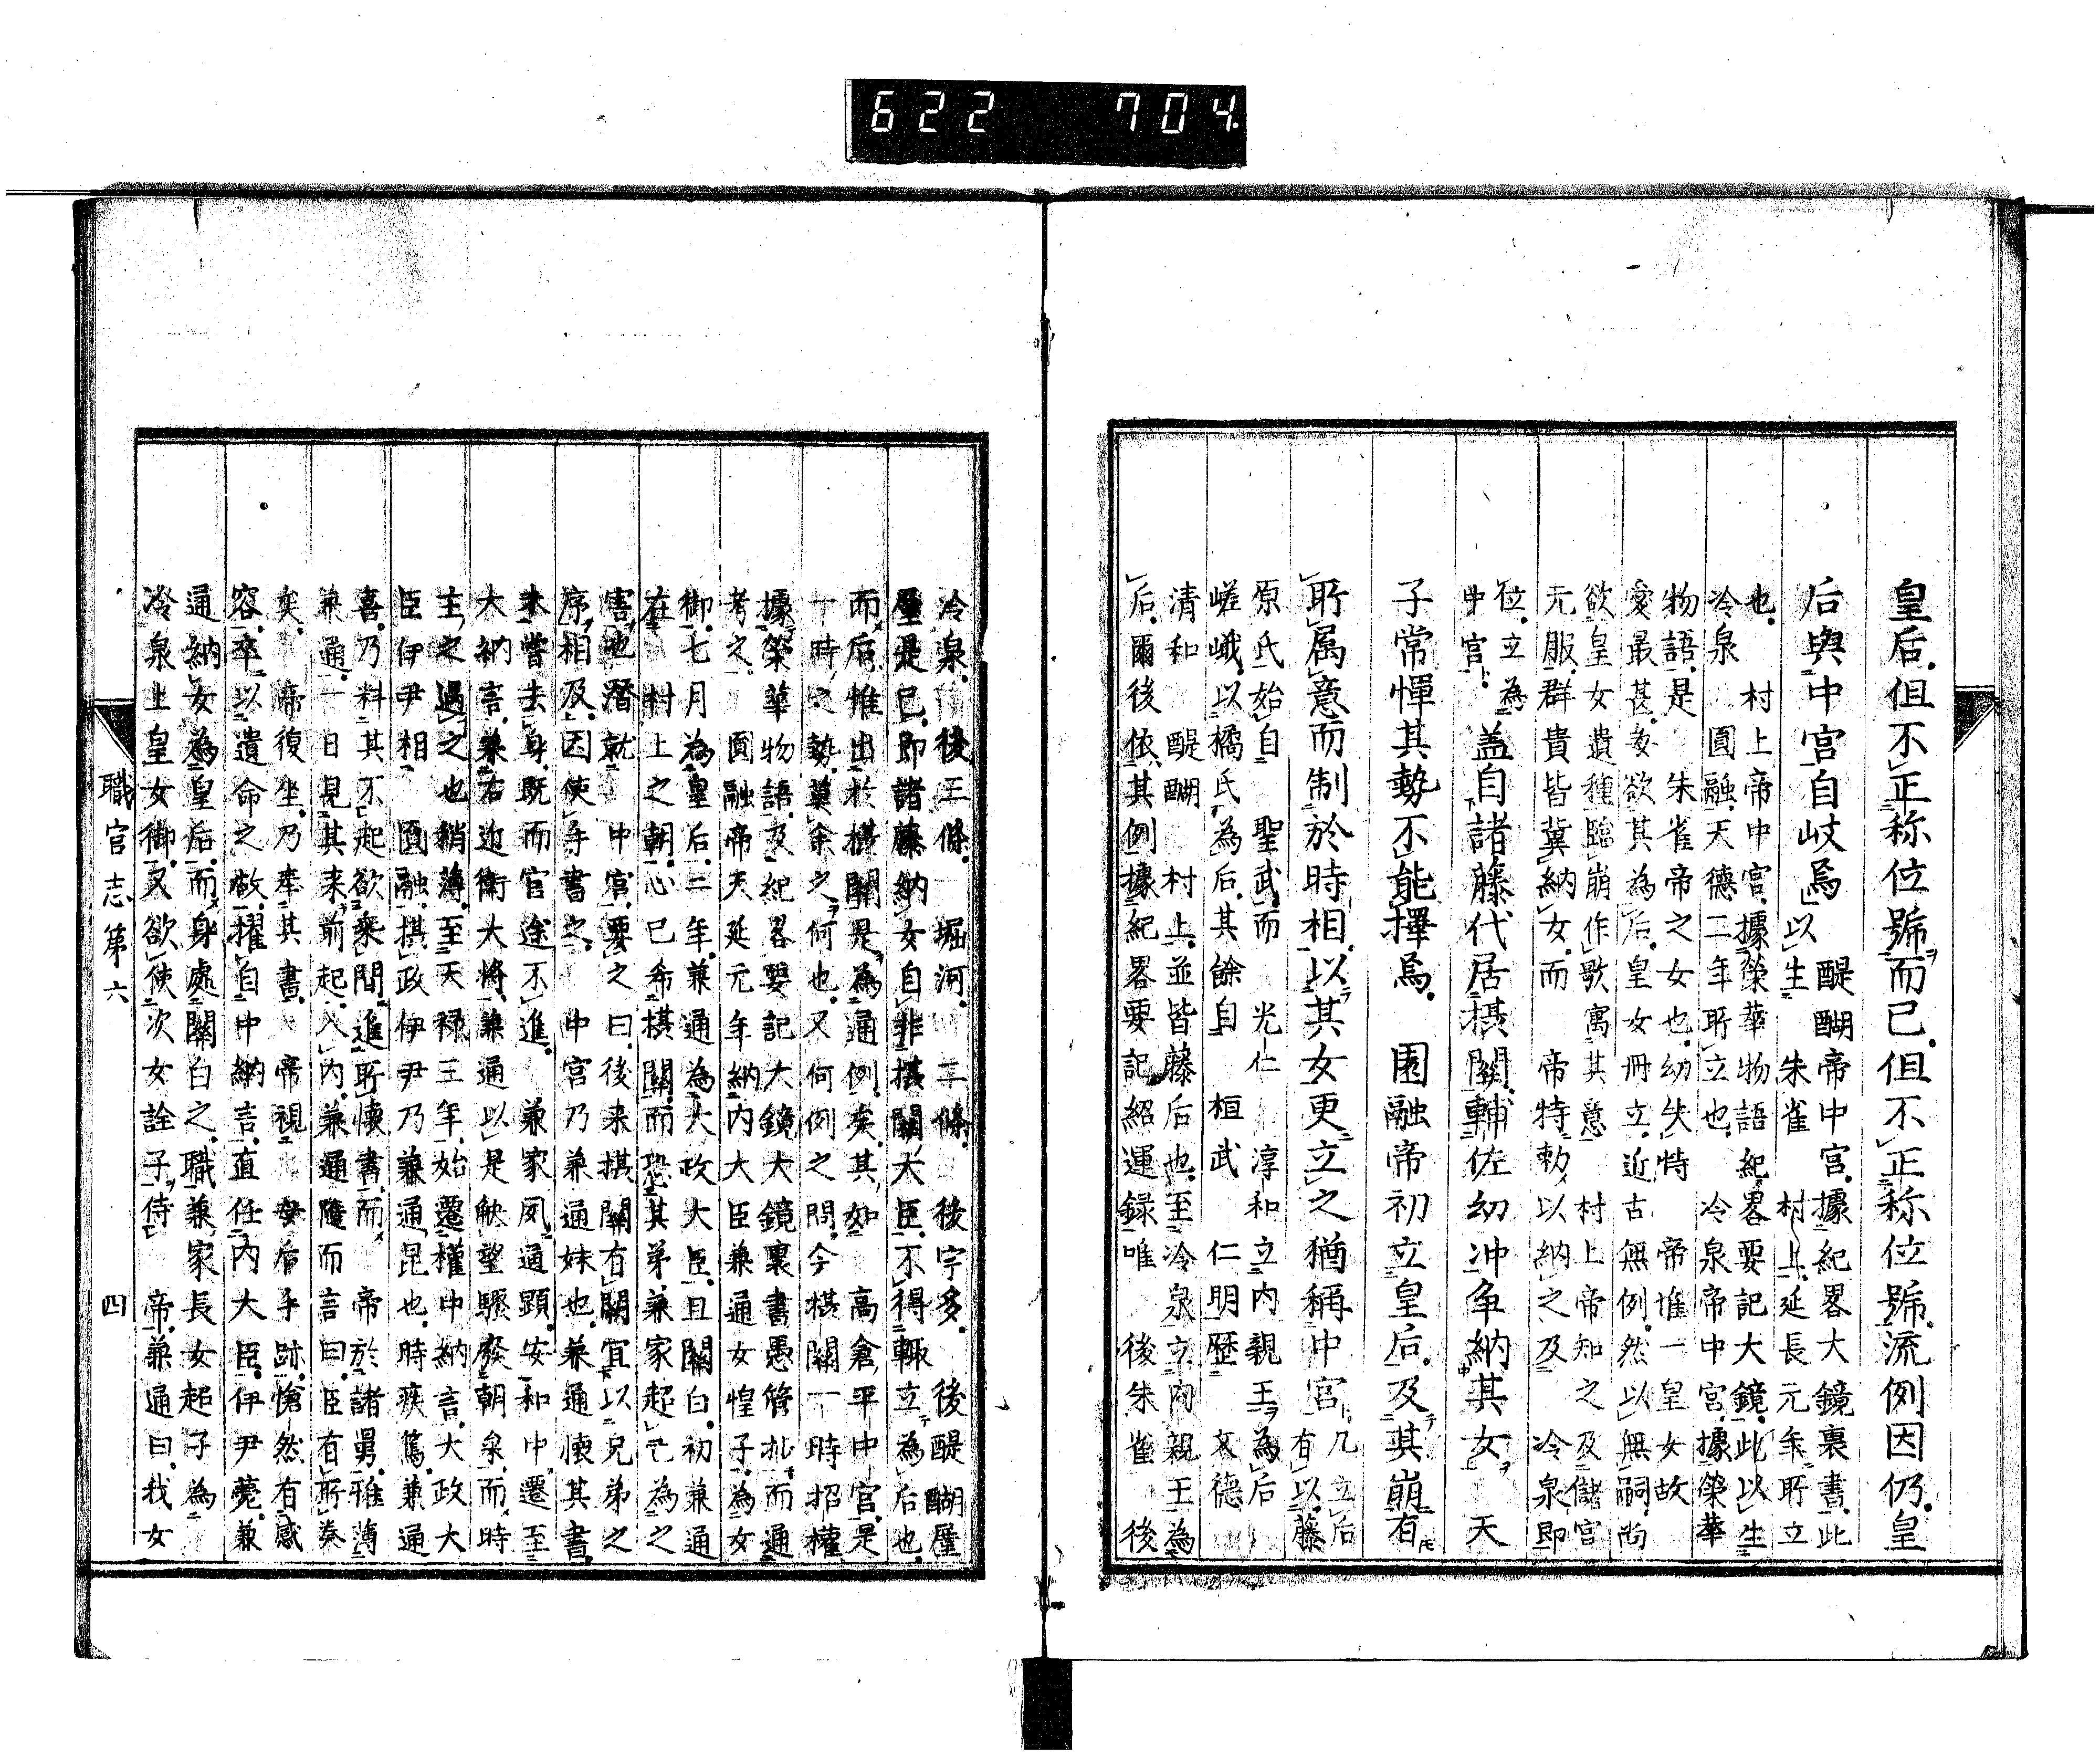 622 704
皇后但不正称位號而已但不正称位號流例因仍皇
后與中宮自岐焉
醍醐帝中宮據紀畧大鏡裏書此
以生 朱雀 村上延長元年所立
也 村上帝中宮據榮華物語紀畧要記大鏡此以生
冷泉 圓融天德二年所立也 冷泉帝中宮據榮華
物語是 朱雀帝之女也幼失恃 帝惟一皇女故
愛最甚欲其為后皇女冊立近古無例然以無嗣尚
欲皇女遺種臨崩作歌寓其意 村上帝知之及儲宮
元服群貴皆冀納女而 帝特勅以納之及 冷泉即
位立為
中宮
盖自諸藤代居摂關輔佐幼冲争納其女天
子常憚其勢不能擇焉 圓融帝初立皇后及其崩有
所属意而制於時相以其女更立之猶稱中宮
凡立后
有以藤
原氏始自 聖武而 光仁 淳和立内親王為后
嵯峨以橘氏為后其餘自 桓武 仁明歷 文德
清和 醍醐 村上並皆藤后也至冷泉立内親王為
后爾後依其例據紀畧要記紹運録唯 後朱雀 後
冷泉 後三條 堀河 二條 後宇多 後醍醐
是已即諸藤納女自非摂關大臣不得輙立為后也
而后惟出於摂關是為通例矣其如 高倉平中宮是
一時之勢莫余之何也又何例之問今摂關一時招權
據榮華物語及紀畧要記大鏡大鏡裏書愚管抄而通
考之 圓融帝天延元年納内大臣兼通女惶子為女
御七月為皇后二年兼通為大政大臣且關白初兼通
在 村上之朝心已希摂關而恐其弟兼家起已為之
害也潛就 中宮要之曰後来摂關有關宜以兄弟之
序相及因使手書之 中宮乃兼通妹也兼通懷其書
未嘗去身既而官途不進 兼家夙通顕安和中遷至
大納言兼右近衛大将兼通以是觖望驟廢朝参而時
主之遇之也稍薄至天禄三年始遷權中納言大政大
臣伊尹相 圓融摂政伊尹乃兼通昆也時疾篤兼通
喜乃料其不起欲乗間進所懷書而 帝於諸舅雅薄
兼通一日見其来前起入内兼通隨而言曰臣有所奏
矣 帝復坐乃奉其書 帝視 母后手跡愴然有感
容卒以遺命之故擢自中納言直任内大臣伊尹薨兼
通納女為皇后而身處關白之職兼家長女起子為
冷泉上皇女御又欲使次女詮子侍 帝兼通曰我女
職官志第六 四